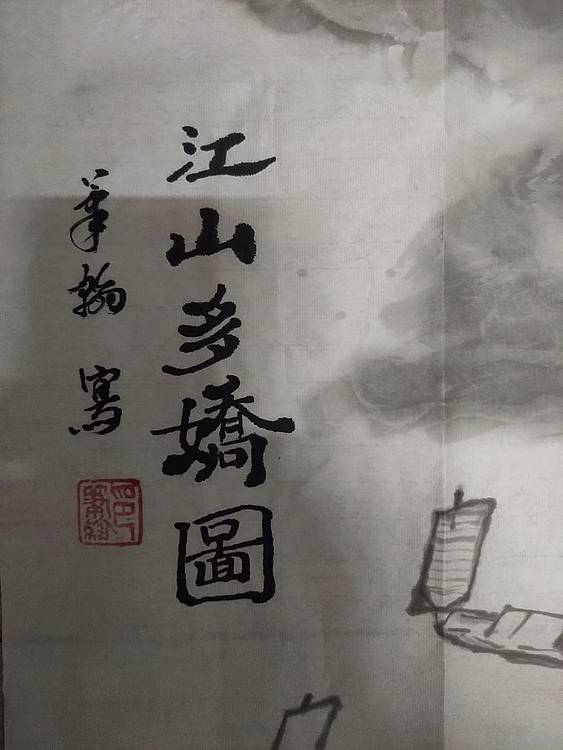 江山多嬌圖
翰 寫